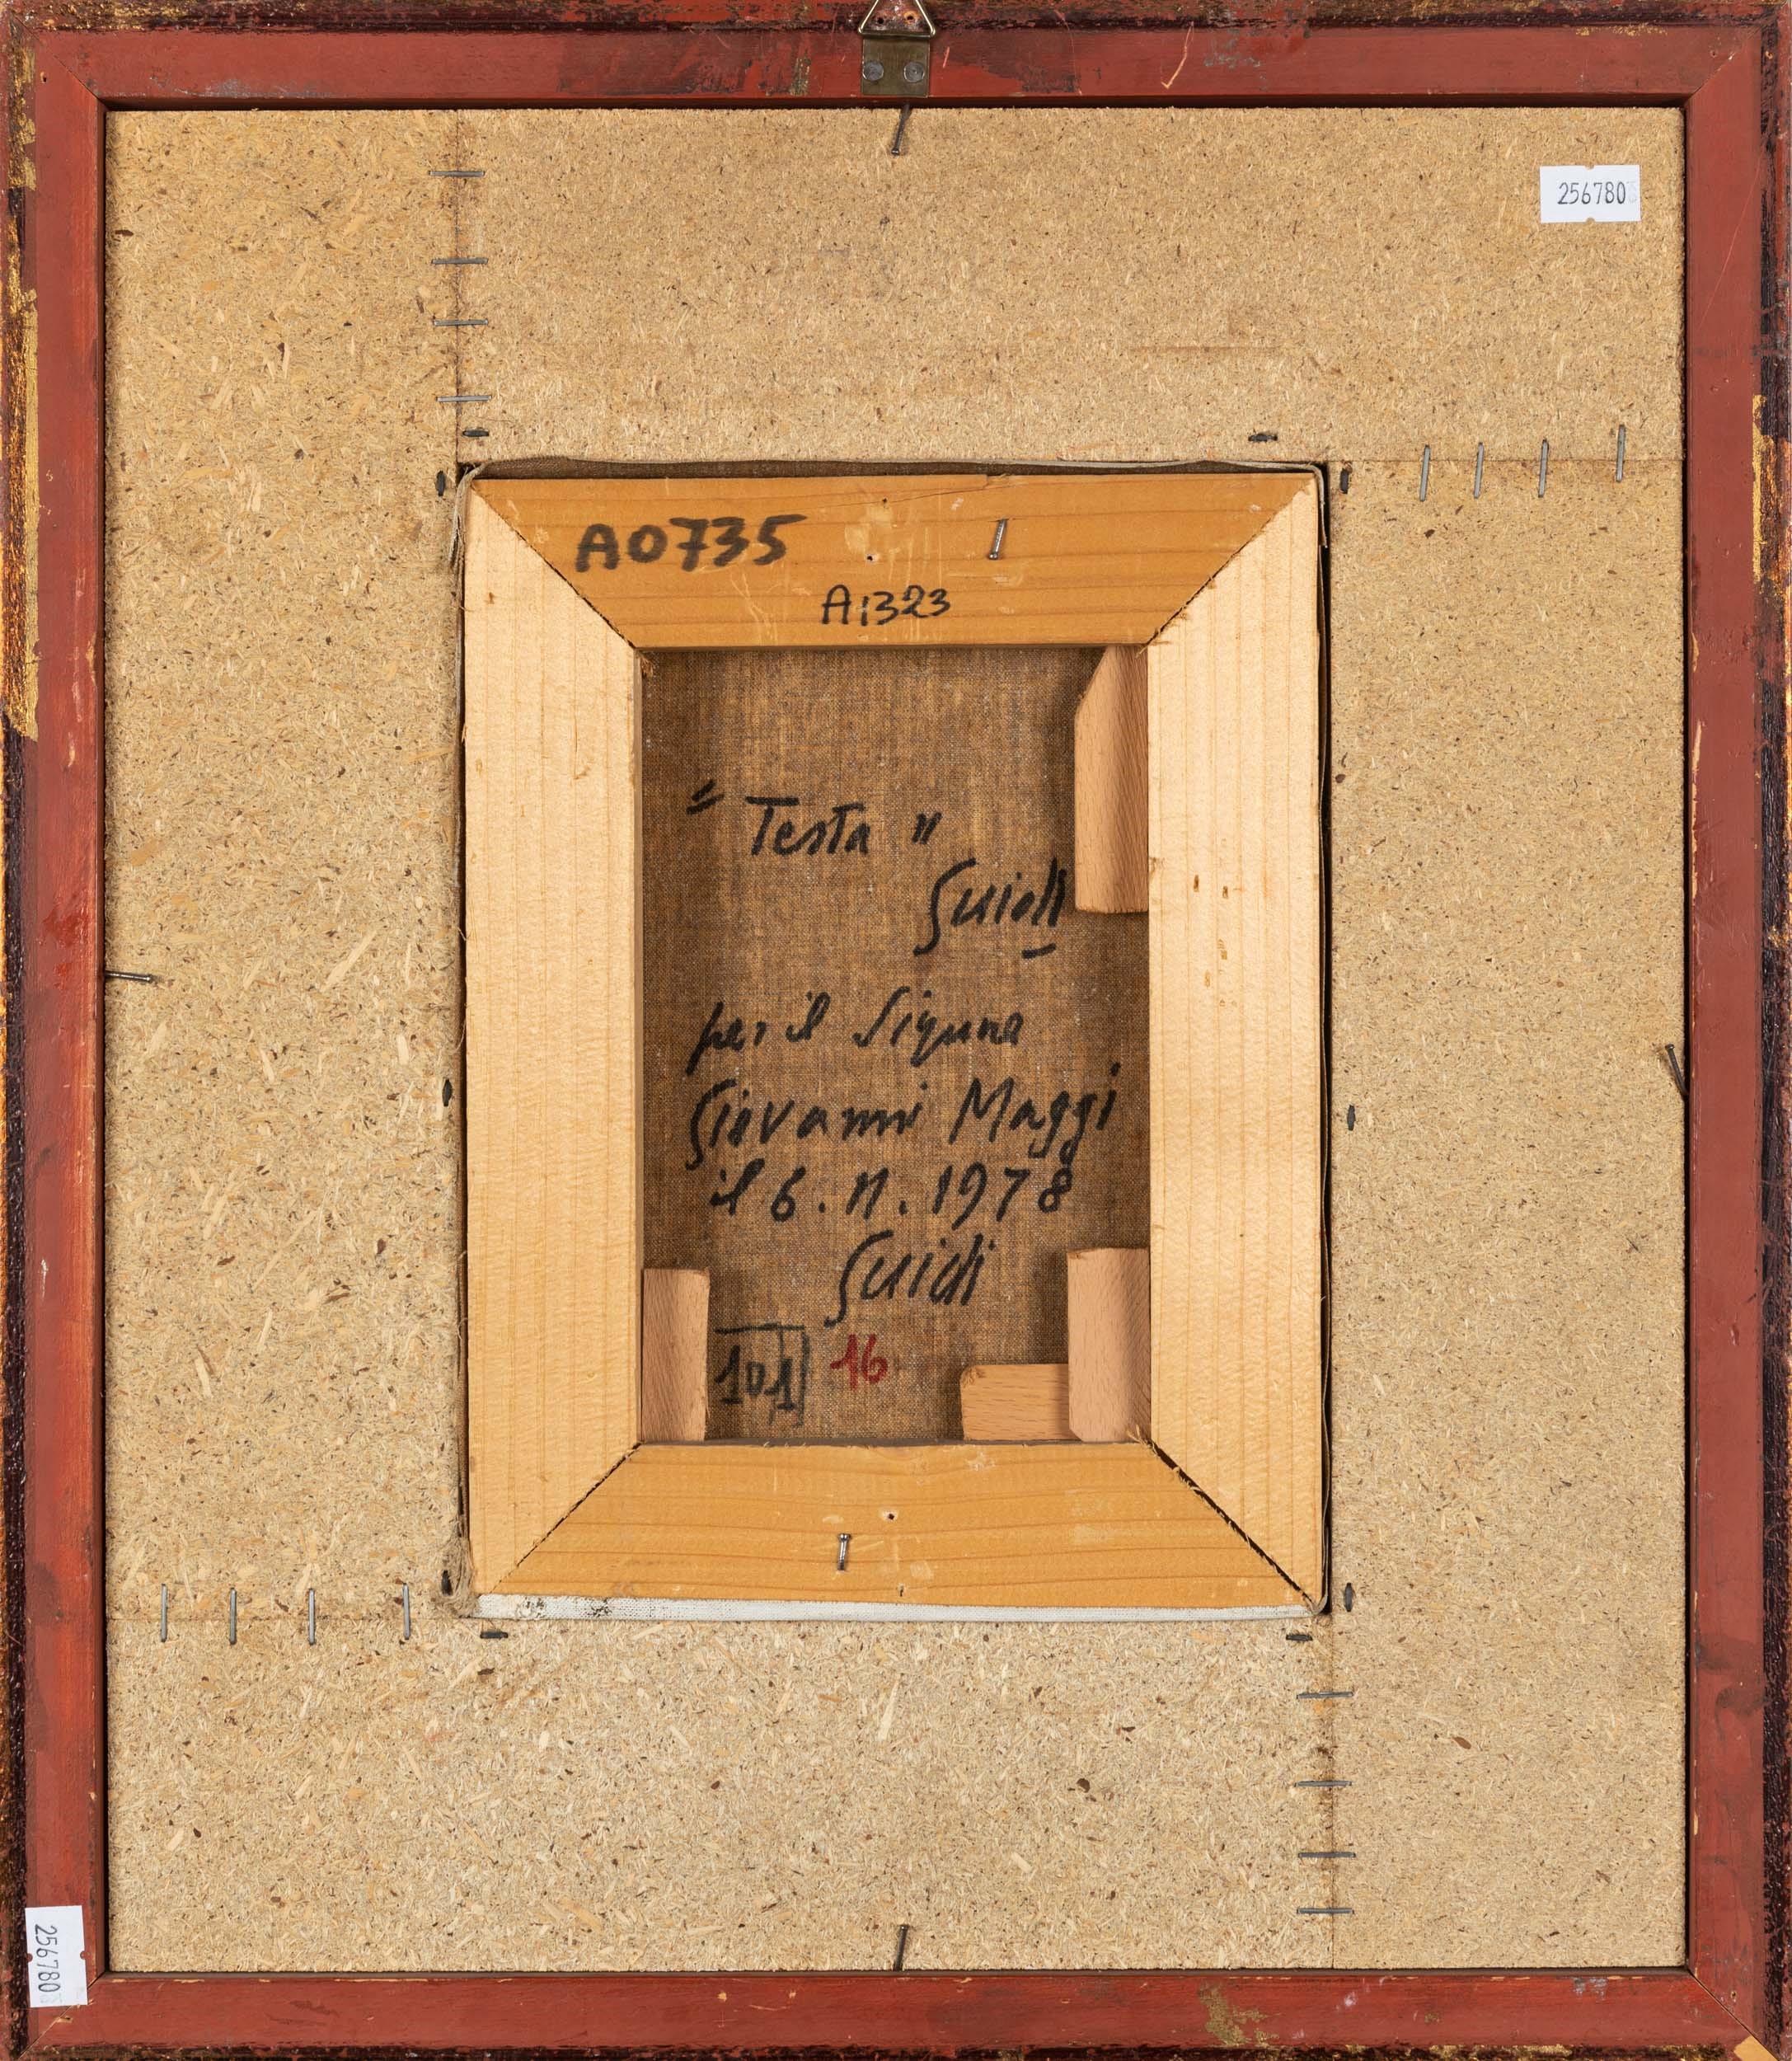 256780
A0735
A1323
" Testa "
Guidi
per il Signor
Giovanni Maggi
il 6.11.1978
Guidi
101 16
256780